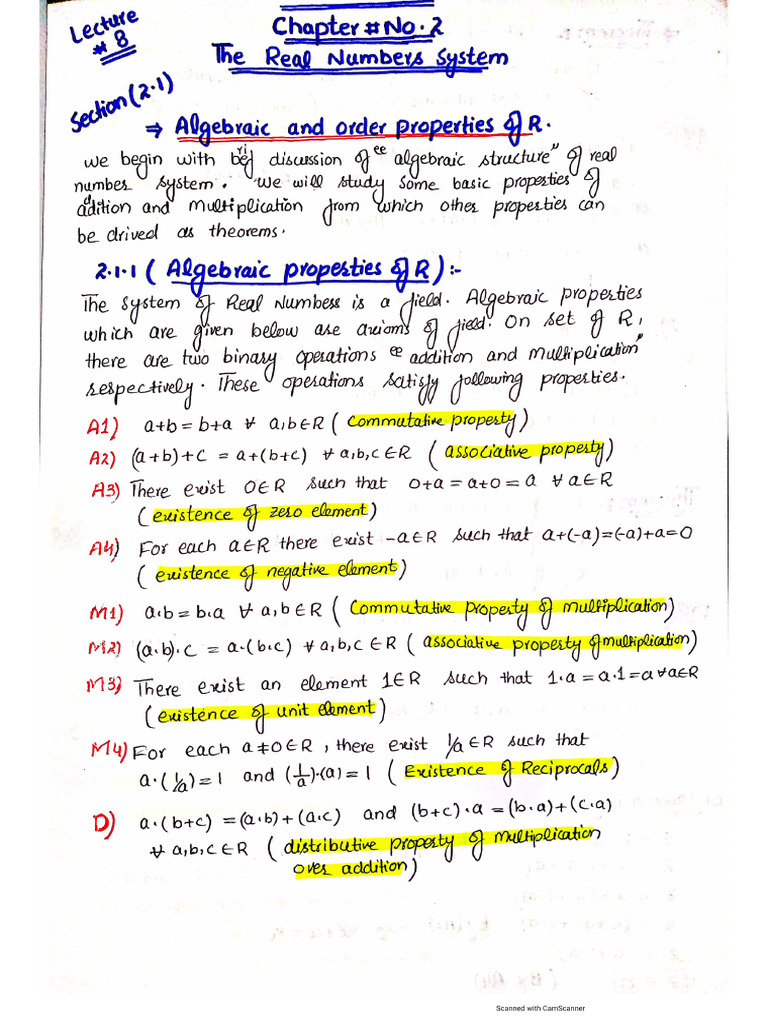 Lecture # 8
Chapter # No. 2
The Real Numbers System
Section (2.1)
⇒ Algebraic and order properties of R.
we begin with brief discussion of "algebraic structure" of real
number system. We will study some basic properties of
addition and multiplication from which other properties can
be drived as theorems.
2.1.1 ( Algebraic properties of R ) :-
The system of Real Numbers is a field. Algebraic properties
which are given below are axioms of field. On set of R,
there are two binary operations "addition and multiplication"
respectively. These operations satisfy following properties.
A1) a+b = b+a ∀ a,b∈R ( Commutative property)
A2) (a+b)+c = a+(b+c) ∀ a,b,c∈R ( associative property)
A3) There exist 0∈R such that 0+a = a+0 = a ∀ a∈R
( existence of zero element)
A4) For each a∈R there exist -a∈R such that a+(-a)=(-a)+a=0
( existence of negative element)
M1) a.b = b.a ∀ a,b∈R ( Commutative property of multiplication)
M2) (a.b).c = a.(b.c) ∀ a,b,c∈R ( associative property of multiplication)
M3) There exist an element 1∈R such that 1.a = a.1=a ∀ a∈R
( existence of unit element)
M4) For each a≠0∈R, there exist 1/a∈R such that
a.(1/a)=1 and (1/a).(a)=1 ( Existence of Reciprocals)
D) a.(b+c) =(a.b)+(a.c) and (b+c).a =(b.a)+(c.a)
∀ a,b,c∈R ( distributive property of multiplication
over addition)
Scanned with CamScanner